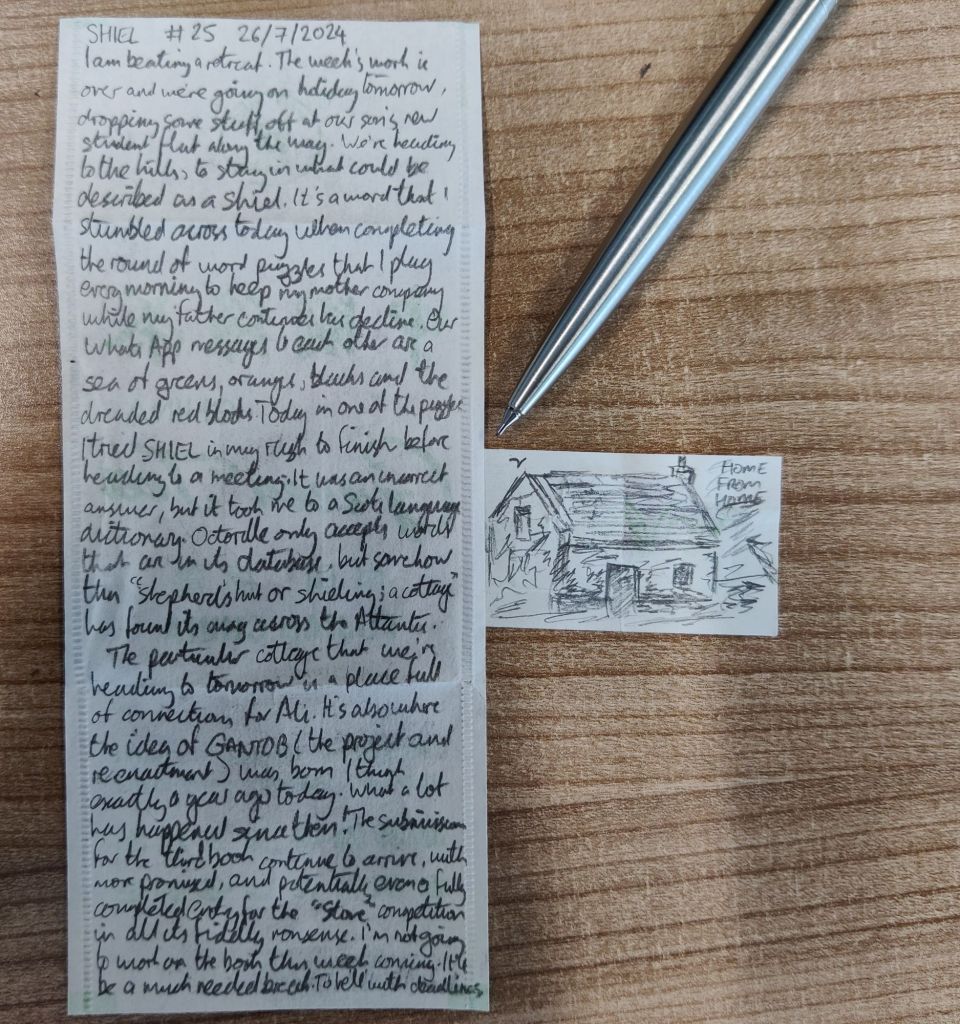 SHIEL #25 26/7/2024
I am beating a retreat. The week's work is
over and we're going on holiday tomorrow,
dropping some stuff off at our son's new
student flat along the way. We're heading
to the hills, to stay in what could be
described as a shiel. It's a word that I
stumbled across today when completing
the round of word puzzles that I play
every morning to keep my mother company
while my father continues his decline. Our
WhatsApp messages to each other are a
sea of greens, oranges, blacks and the
dreaded red blocks. Today in one of the puzzles
I tried SHIEL in my rush to finish before
heading to a meeting. It was an incorrect
answer, but it took me to a Scots language
dictionary. Octordle only accepts words
that are in its database, but somehow
this "shepherd's hut or shieling; a cottage"
has found its way across the Atlantic.
The particular cottage that we're
heading to tomorrow is a place full
of connections for Ali. It's also where
the idea of GANTOB (the project and
reenactment) was born I think
exactly a year ago today. What a lot
has happened since then! The submissions
for the third book continue to arrive, with
more promised, and potentially even a fully
completed entry for the "Stove" competition
in all its fiddly nonsense. I'm not going
to work on the book this week coming. It'll
be a much needed break. To hell with deadlines.
HOME
FROM
HOME